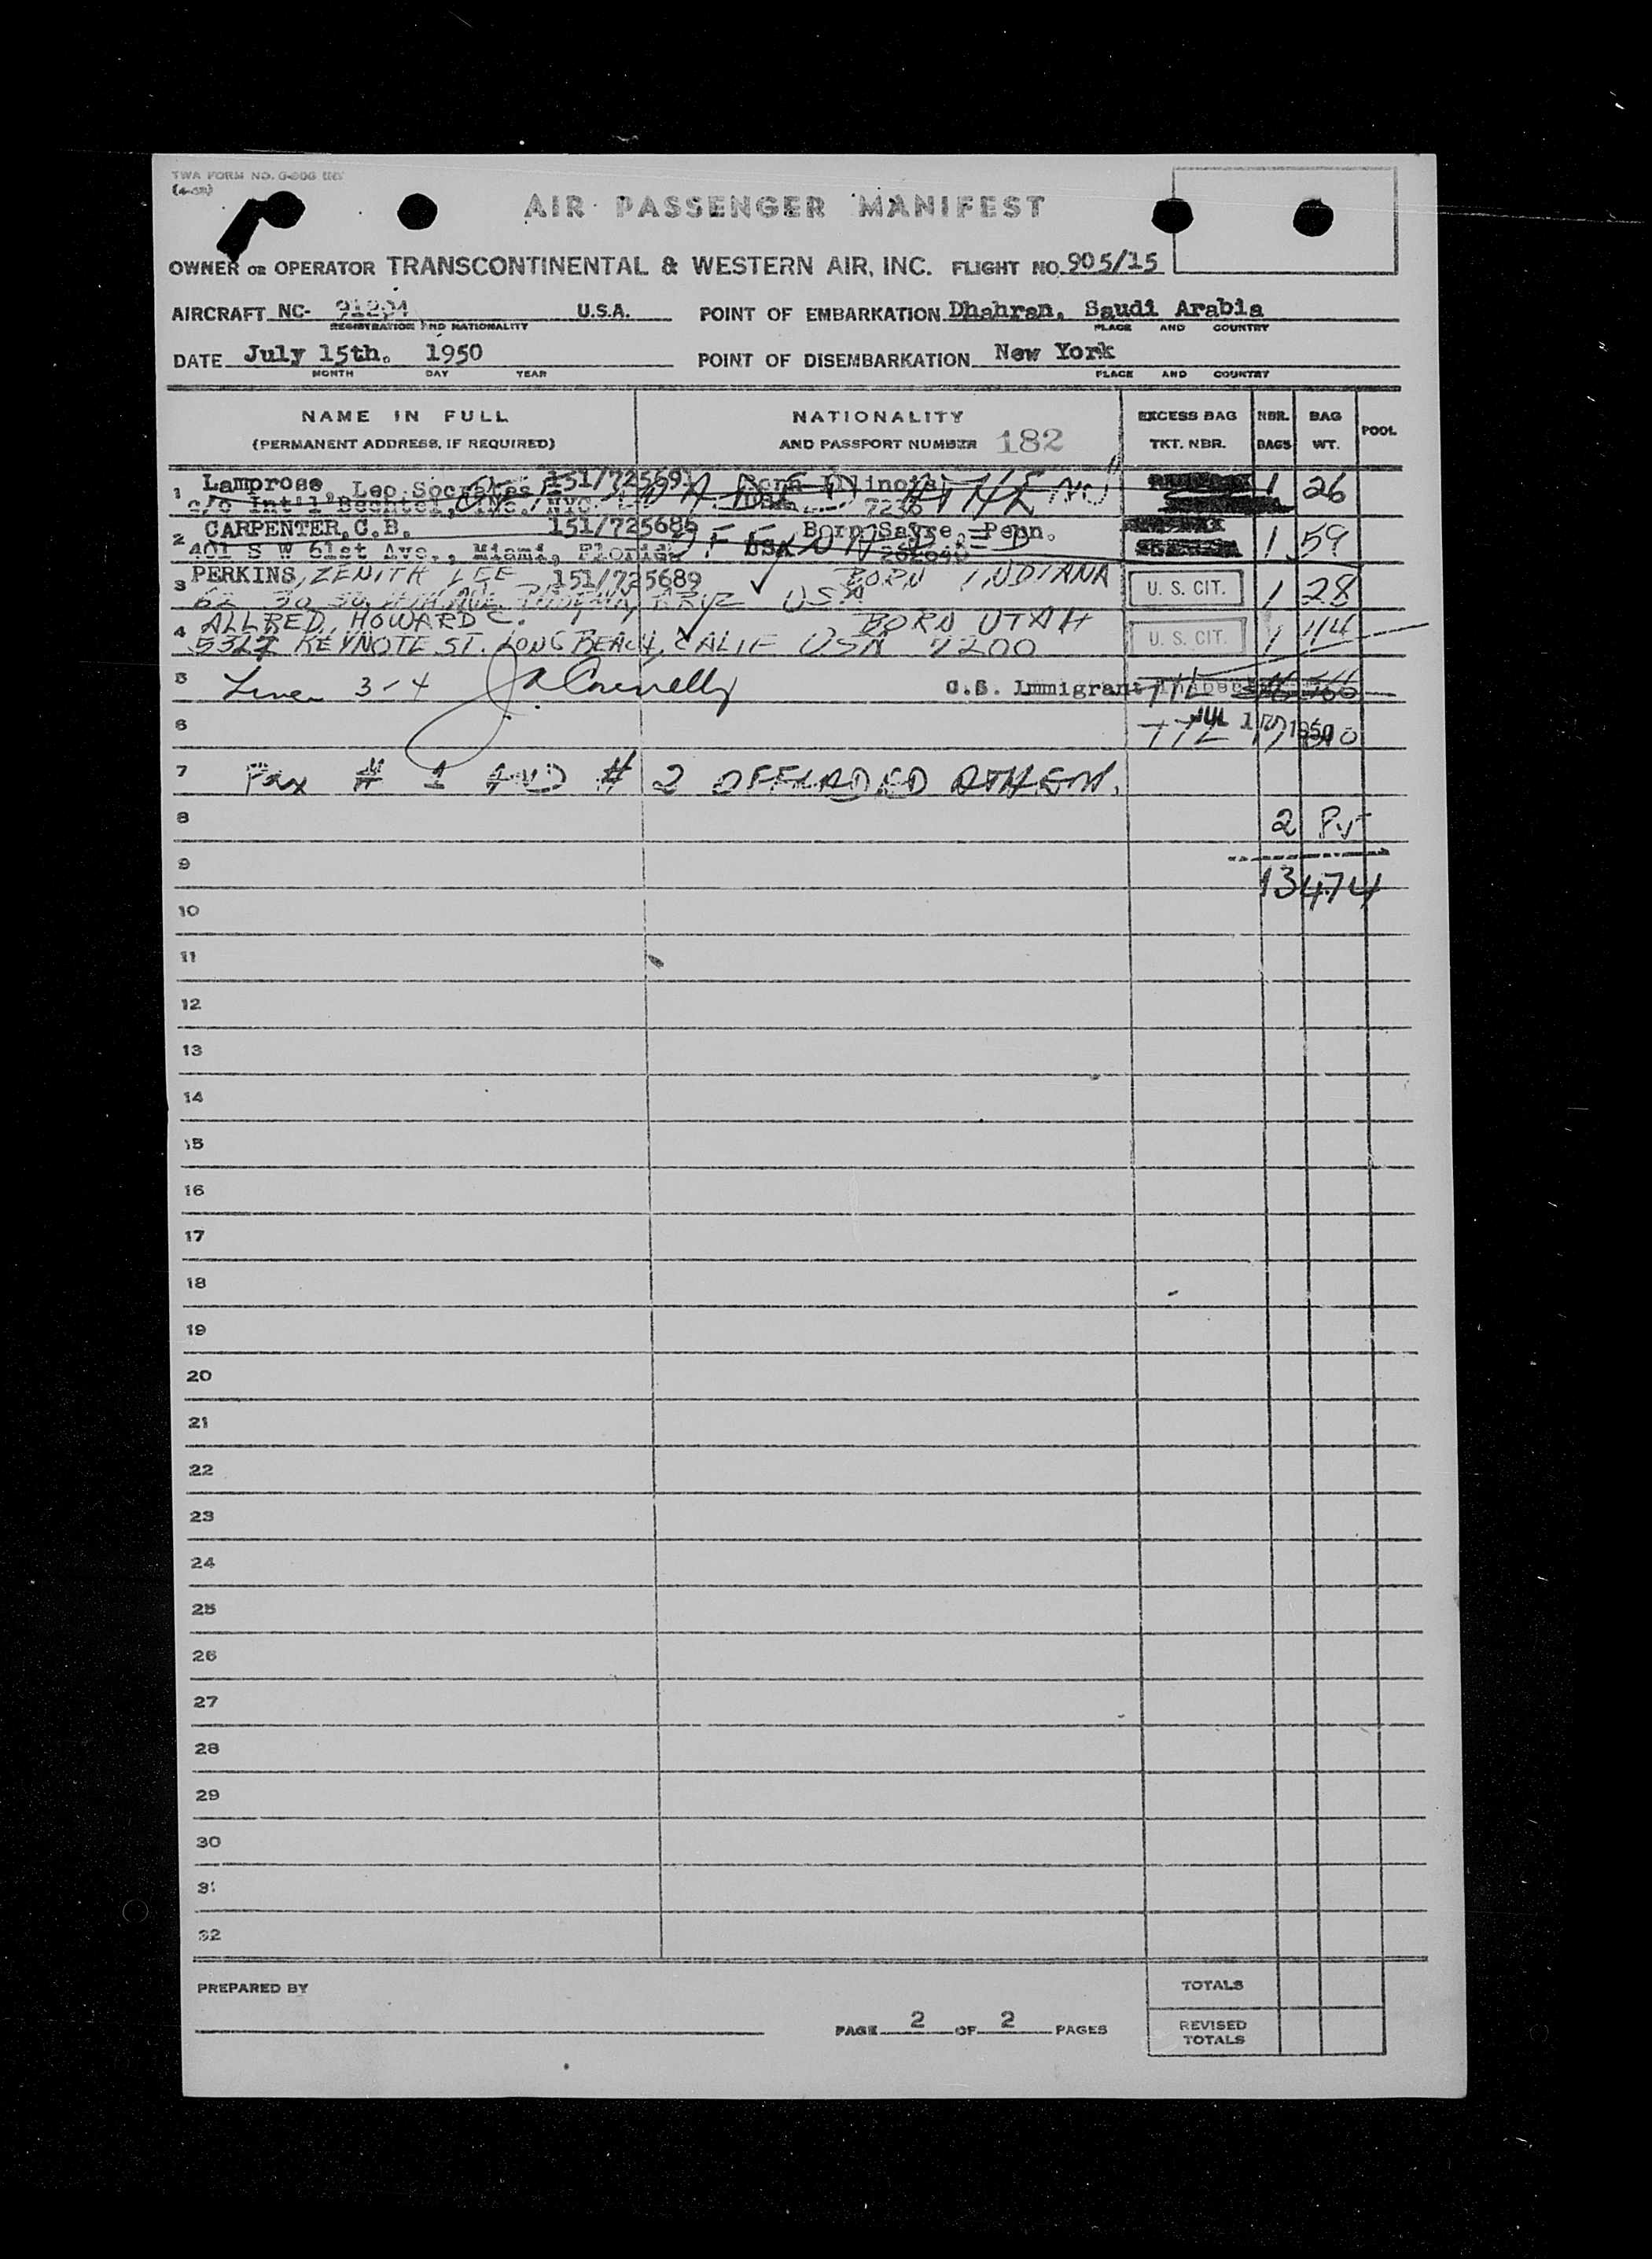 TWA FORM NO.
AIR PASSENGER MANIFEST
OWNER OR OPERATOR TRANSCONTINENTAL & WESTERN AIR, INC. FLIGHT NO. 905/15
AIRCRAFT NC- 91204 U.S.A. POINT OF EMBARKATION Dhahran, Saudi Arabia
REGISTRATION AND NATIONALITY PLACE AND COUNTRY
DATE July 15th. 1950 POINT OF DISEMBARKATION New York
MONTH DAY YEAR PLACE AND COUNTRY
NAME IN FULL NATIONALITY EXCESS BAG NBR. BAG POOL
(PERMANENT ADDRESS, IF REQUIRED) AND PASSPORT NUMBER 182 TKT. NBR. BAGS WT.
1 Lamprose, Leo Socrates 151/725691 Born Illinois 1 26
c/o Int'l Bechtel, Inc. NYC 7236
2 CARPENTER, C.B. 151/725686 Born Sayre, Penn. 1 59
401 S W 61st Ave., Miami, Florida USA
3 PERKINS, ZENITH LEE 151/725689 BORN INDIANA U. S. CIT. 1 28
USA
4 ALLRED, HOWARD C. BORN UTAH U. S. CIT. 1 44
5327 KEYNOTE ST. LONG BEACH, CALIF USA 7200
5 Lines 3-4 J A Connelly U.S. Immigrant Inspector
6 TTL JUL 1950
7 Pax # 1 AND # 2 OFFLOADED ATHENS.
8 2 Pv
9
13 474
10
11
12
13
14
15
16
17
18
19
20
21
22
23
24
25
26
27
28
29
30
31
32
PREPARED BY TOTALS
PAGE 2 OF 2 PAGES REVISED TOTALS